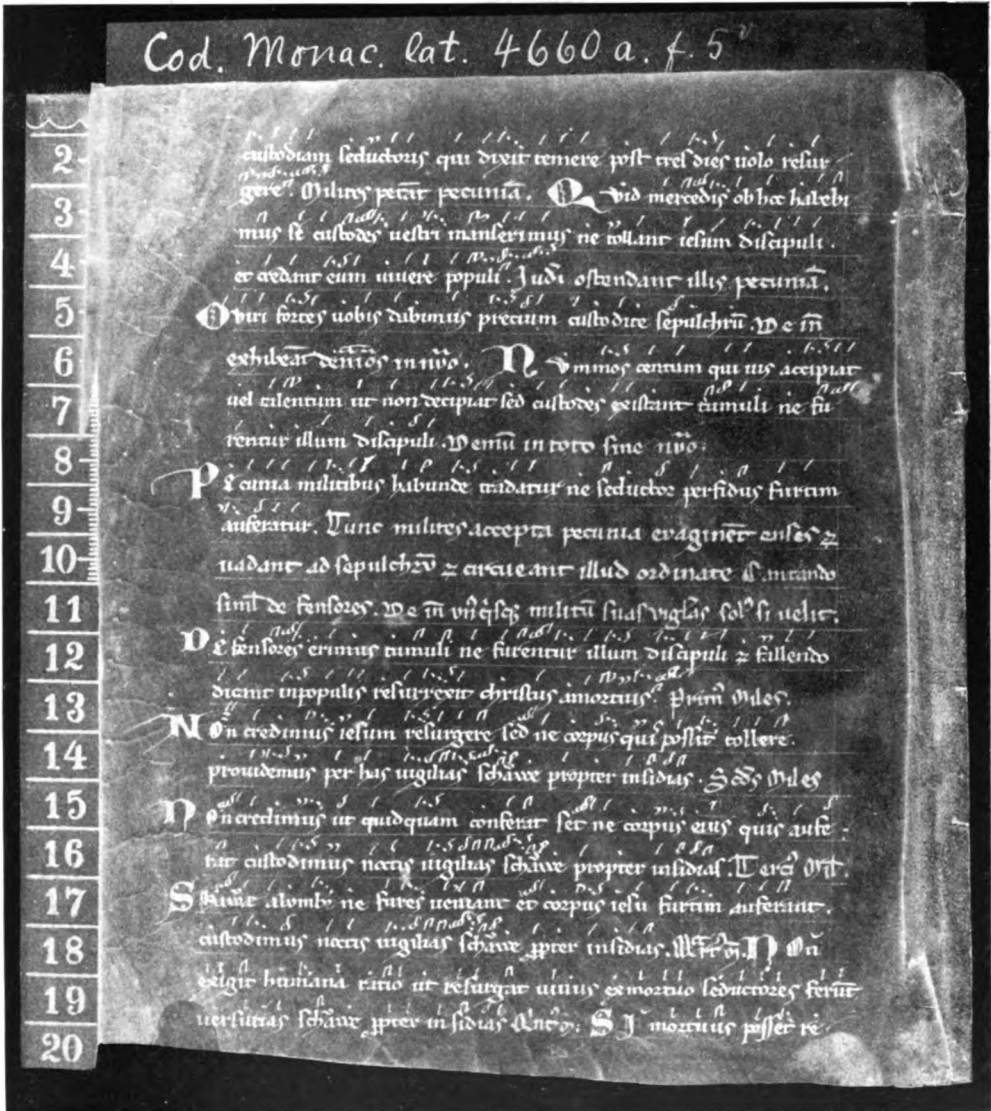 Cod. Monac. lat. 4660 a. f. 5v
custodiam seductoris qui dixit temere post tres dies uolo resur
gere. Milites petāt pecuniā. Quid mercedis ob hoc habebi
mus si custodes uestri manserimus ne tollant iesum discipuli.
et credant eum uiuere populi. Judei ostendant illis pecuniā.
O viri fortes uobis dabimus precium custodite sepulchrū.
exhibeāt in uno. Nummos centum qui uis accipiat
uel talentum ut non decipiat sed custodes existant tumuli ne fu
rentur illum discipuli. in toto sine
Pecunia militibus habunde tradatur ne seductor perfidus furtim
auferatur. Tunc milites accepta pecunia euaginēt enses ⁊
uadant ad sepulchrū ⁊ circueant illud ordinate Cantando
simľ defensores. militū suas solꝰ si uelit.
Defensores erimus tumuli ne furentur illum discipuli ⁊ fallendo
dicant in populis resurrexit christus a mortuis. Primꝰ Miles.
Non credimus iesum resurgere sed ne corpus quis possit tollere.
prouidemus per has uigilias schāwe propter insidias. Scds Miles
Non credimus ut quidquam conferat set ne corpus eius quis aufe
rat custodimus noctis uigilias schāwe propter insidias. Tercꝰ Mil.
ne fures ueniant et corpus iesu furtim auferant.
custodimus noctis uigilias schāwe ꝓpter insidias. Non
exigit humana ratio ut resurgat uiuus ex mortuo seductores ferūt
uersutias schāwe ꝓpter insidias Si mortuus posset re
2
3
4
5
6
7
8
9
10
11
12
13
14
15
16
17
18
19
20